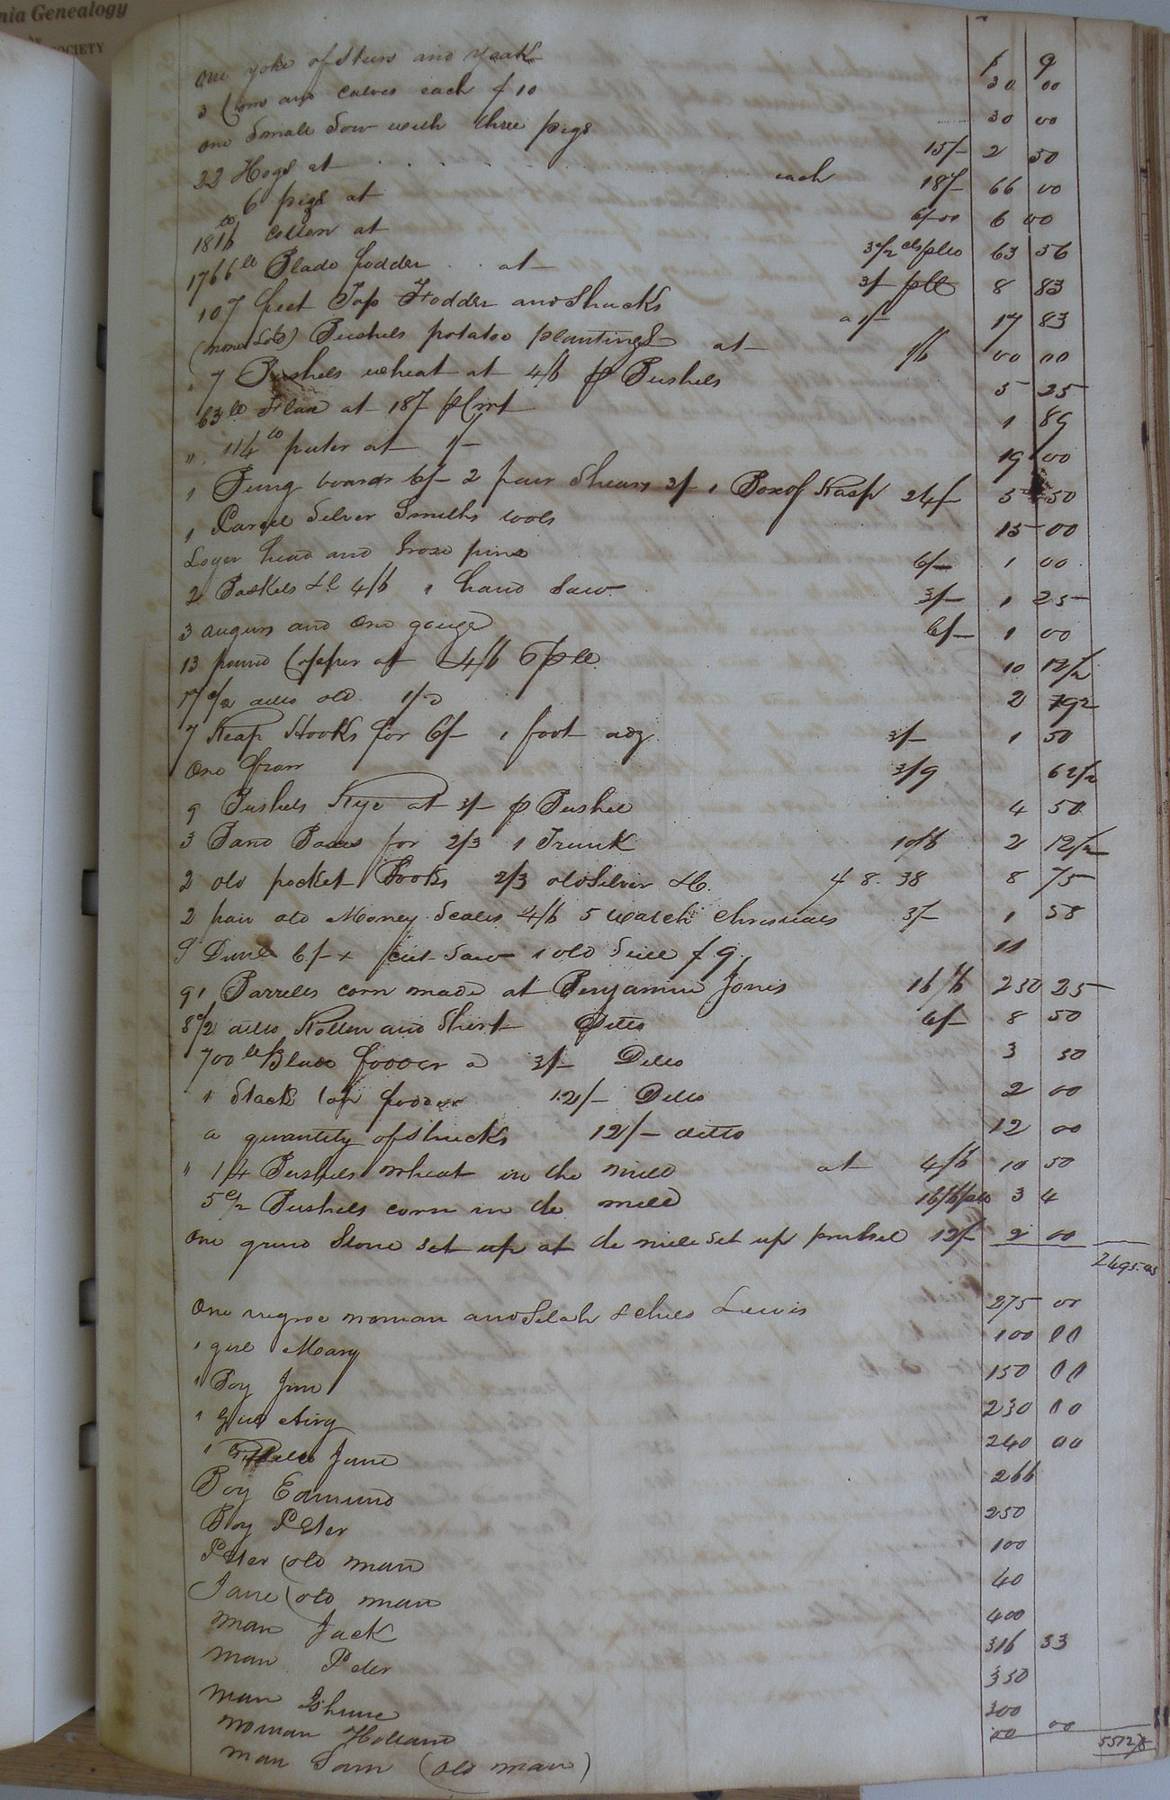 nia Genealogy
SOCIETY
$ 9
One yoke of Steers and 30 00
3 Cows and Calves each $10 30 00
One Small Sow with three pigs 15/- 2 50
22 Hogs at each 18/- 66 00
6 pigs at 6/- 00 6 00
1816 lb Cotton at 3 1/2 cts 63 56
1766 lb Blade fodder at 3/- 8 83
107 feet Top Fodder and Shucks a 1/- 17 83
Bushels potatoe plantings at 1/6 00 00
7 Bushels wheat at 4/6 p Bushels 5 25
63 lb Flax at 18/- 1 89
" 114 lb puter at 1/- 19 00
1 boards 6/- 2 pair Shears 3/- 1 Box of Rasp 24/- 5 50
1 Parcel Silver Smiths tools 15 00
head and pins 6/- 1 00
2 Baskets &c 4/6 1 hand Saw 3/- 1 25
3 augurs and One gouge 6/- 1 00
13 pound Copper at 4/6 10 12 1/2
17 1/2 ditto old 1/2 2 92
7 Reap Hooks for 6/- 1 foot adz 3/- 1 50
One 3/9 62 1/2
9 Bushels Rye at 3/- p Bushel 4 50
3 Band Boxes for 2/3 1 Trunk 10/6 2 12 1/2
2 old pocket Books 2/3 old Silver &c $8.38 8 75
2 pair old Money Scales 4/6 5 watch Christials 3/- 1 58
6/- x cut Saw 1 old $9 11
91 Barrells corn made at Benjamin Jones 16/6 250 25
8 1/2 ditto Rotten and Short Ditto 6/- 8 50
700 lb Blade fodder a 3/- Ditto 3 50
1 Stack fodder 12/- Ditto 2 00
a quantity of shucks 12/- ditto 12 00
" 14 Bushels wheat in the mill at 4/6 10 50
5 1/2 Bushels corn in de mill 16/6 3 4
One grind Stone set up at de mill set up 12/- 2 00
2495.
One negroe woman and Selah & chile Lewis 275 00
1 girl Mary 100 00
1 Boy Jim 150 00
1 Airy 230 00
1 Jane 240 00
Boy Edmund 266
Boy Peter 250
Peter (old man 100
Jane (old man 40
man Jack 400
man Peter 316 33
man 350
woman Holland 300
man Sam (old man) 00 00